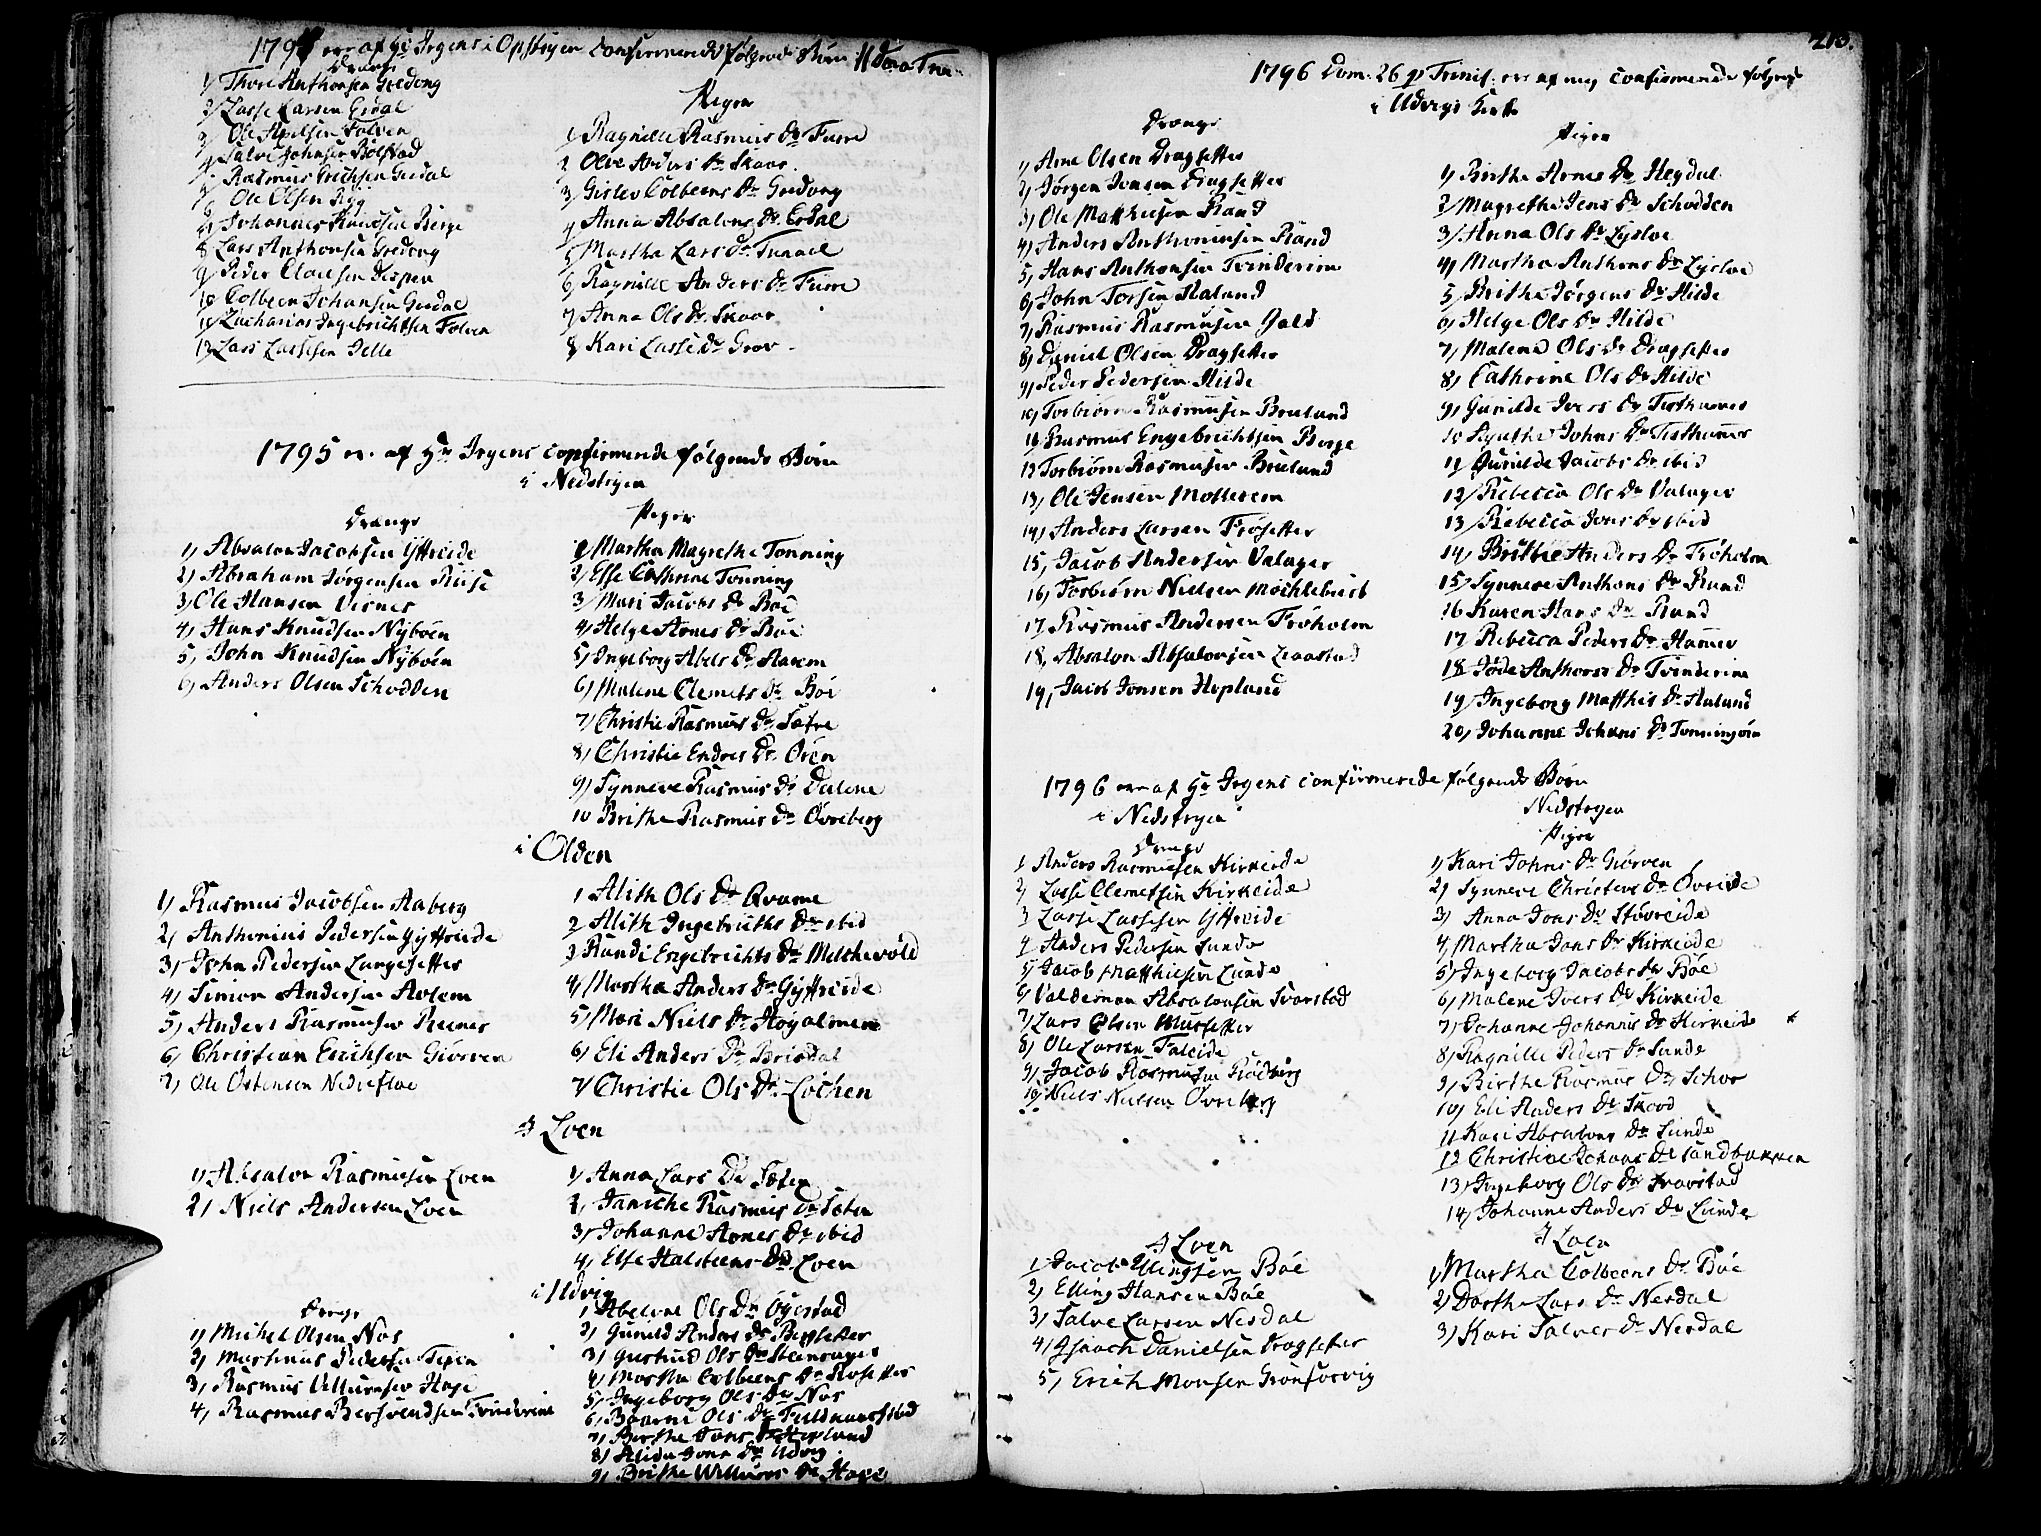 1795 er af Hr Irgens i Opstryen confirmerede følgende Børn
Drænge
1) Thore Anthonsen Giedong
2) Lasse Larsen Erdal
3) Ole Folven
4) Salve Johnsen Bolstad
5) Rasmus Erichsen Giedal
6) Ole Olsen Ryg
7) Johannes Knudsen Berge
8 Lars Anthonsen Gredong
9) Peder Clausen Hiepen
10 Colbeen Johansen Gredal
11 Zacharias Ingebrichtsen Folven
12 Lars Lassesen Jelle
Pigen
1 Ragnille Rasmus Dr Furre
2 Olve Anders Dr Skaar
3) Gislev Colbeens Dr Gredong
4 Anna Absalons Dr Erdal
5 Martha Lars Dr Tunael
6) Ragnille Anders Dr Furre
7 Anna Ols Dr Skaar
8 Kari Lasse Dr Grov
1795 er af Hr Irgens confirmerede følgende Børn
i Nedstryen
Drænge
1) Absalon Jacobsen Ytreeide
2) Abraham Jørgensen Riise
3) Ole Hansen Visnes
4) Hans Knudsen Nyboen
5) John Knudsen Nyboen
6) Anders Olsen Schodden
Pigen
1 Martha Magrethe Tonning
2) Else Cathrine Tonning
3) Mari Jacobs Dr Bøe
4) Helge Arnes Dr Bøe
5) Ingeborg Abels Dr Aarem
6) Malene Clemets Dr Bøe
7) Christie Rasmus Dr Sætre
8) Christie Endres Dr Øren
9) Synneve Rasmus Dr Dalene
10 Brithe Rasmus Dr Øvreberg
i Olden
1) Rasmus Jacobsen Aaberg
2) Anthonius Pedersen Gyttreide
3) John Pedersen Langesetter
4) Simon Andersen Aolem
5) Anders Rasmusen Reenes
6) Christian Erichsen Giørven
7) Ole Ostensen Nedrefloe
1 Alith Ols Dr Qvame
2 Alith Ingebricths Dr ibid
3 Randi Engebrichts Dr Melchevold
4) Martha Anders Dr Gyttreide
5) Mari Niels Dr Høyalmen
6) Eli Anders Dr Brixdal
7) Christie Ols Dr Løchen
I Loen
1) Absalon Rasmusen Loen
2) Niels Andersen Loen
1) Anna Lars Dr Sæten
2) Janiche Rasmus Dr Sæten
3) Johanne Arnes Dr ibid
4) Else Halsteens Dr Loen
i Udvig
Drenge
1) Michel Olsen Nos
2) Martinus Pedersen Teien
3) Rasmus Villumsen Hage
4) Rasmus Bersvendsen Tvinderene
1 Abelone Ols Dr Bygstad
2) Gunild Anders Dr Berssetter
3) Giertrud Ols Dr Steensager
4) Martha Colbeens Dr Rosetter
5) Ingeborg Ols Dr Nos
6) Baarni Ols Dr Fieldmandstad
7) Berthe Jons Dr Hopland
8) Alida Jons Dr Udvig
9) Brithe Willums Dr Hage
213.
1796 Dom: 26 p Trinit: er af mig confirmerede følgende
i Udvigs Kirke
Drænge
1) Arne Olsen Dragsetter
2) Jørgen Jonsen Dragsetter
3) Ole Matthiesen Rand
4) Anders Anthoniusen Rand
5) Hans Anthonsen Tvinderim
6) John Torsen Haland
7) Rasmus Rasmusen Jald
8) Daniel Olsen Dragsetter
9) Peder Pedersen Hilde
10) Torbiørn Rasmusen Bruland
11 Rasmus Engebrichtsen Berge
12 Torbiørn Rasmusen Bruland
13) Ole Jensen Mollerem
14) Anders Larsen Frøsetter
15) Jacob Andersen Valager
16) Torbiørn Nielsen Mochlebust
17 Rasmus Andersen Frøholm
18) Absalon Absalonsen Taarstad
19) Jacob Jonsen Hopland
Pigen
1) Brithe Arnes Dr Hegdal
2) Magrethe Jens Dr Schodden
3) Anna Ols Dr Lysloe
4) Martha Anthons Dr Lysloe
5) Brithe Jørgens Dr Hilde
6) Helge Ols Dr Hilde
7) Malene Ols Dr Dragsetter
8) Cathrine Ols Dr Hilde
9) Gunilde Ivers Dr Tisthammer
10 Agathe Johns Dr Tisthammer
11 Gunilde Jacobs Dr ibid
12) Rebecca Ols Dr Valager
13) Rebecca Jons Dr ibid
14) Brithe Anders Dr Frøholm
15) Synneve Anthons Dr Rand
16 Karen Hans Dr Rand
17 Rebecca Peders Dr Hammer
18 Jøde Anthons Dr Tvinderim
19) Ingeborg Matthis Dr Haland
20) Johanne Johans Dr Tonningøen
1796 er af Hr Irgens confirmerede følgende Børn
i Nedstryen
Drænge
1 Anders Rasmusen Kirkeide
2) Lasse Clemetsen Kirkeide
3 Lasse Lassesen Yttreide
4 Anders Pedersen Sunde
5) Jacob Matthiesen Lunde
6) Valdeman Absalonsen Svarstad
7) Lars Olsen Mursetter
8) Ole Larsen Faleide
9) Jacob Rasmusen Rødberg
10) Niels Nielsen Øvreberg
Nedstryen
Pigen
1) Kari Johns Dr Giørven
2) Synneve Christens Dr Øvreide
3) Anna Jons Dr Støvreide
4) Martha Jons Dr Kirkeide
5) Ingeborg Jacobs Dr Bøe
6) Malene Ivers Dr Kirkeide
7) Johanne Johannis Dr Kirkeide
8) Ragnille Peders Dr Sunde
9) Birthe Rasmus Dr Schor
10) Eli Anders Dr Skaad
11 Kari Absalons Dr Sunde
12 Christine Johans Dr Sandbakken
13) Ingeborg Ols Dr Svarstad
14) Johanne Anders Dr Lunde
I Loen
1 Jacob Ellingsen Bøe
2) Elling Hansen Bøe
3) Salve Larsen Nesdal
4) Danielsen Dragsetter
5) Erich Monsen Grønforvig
I Loen
1) Martha Colbeens Dr Bøe
2) Dorthe Lars Dr Nesdal
3) Kari Salves Dr Nesdal